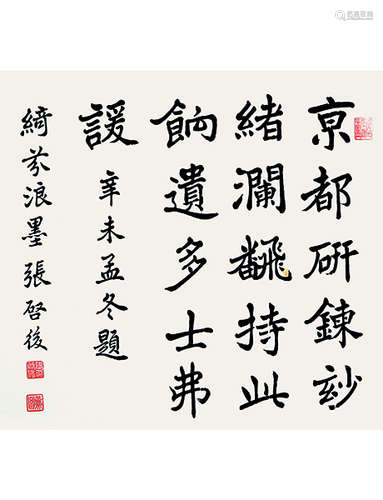 京都研鍊玅
緒瀾飜持此
餉遺多士弗
諼
辛未孟冬題
綺芬浪墨張啓後